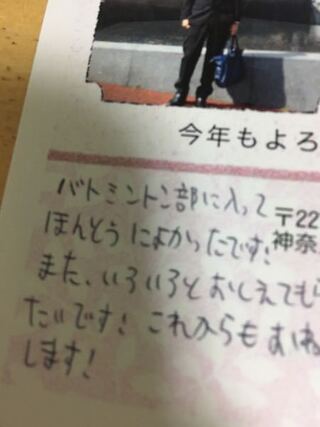 今年もよろ
バトミントン部に入って
〒22
ほんとうによかったです!
神奈
また、いろいろとおしえてもら
たいです! これからもおね
します!